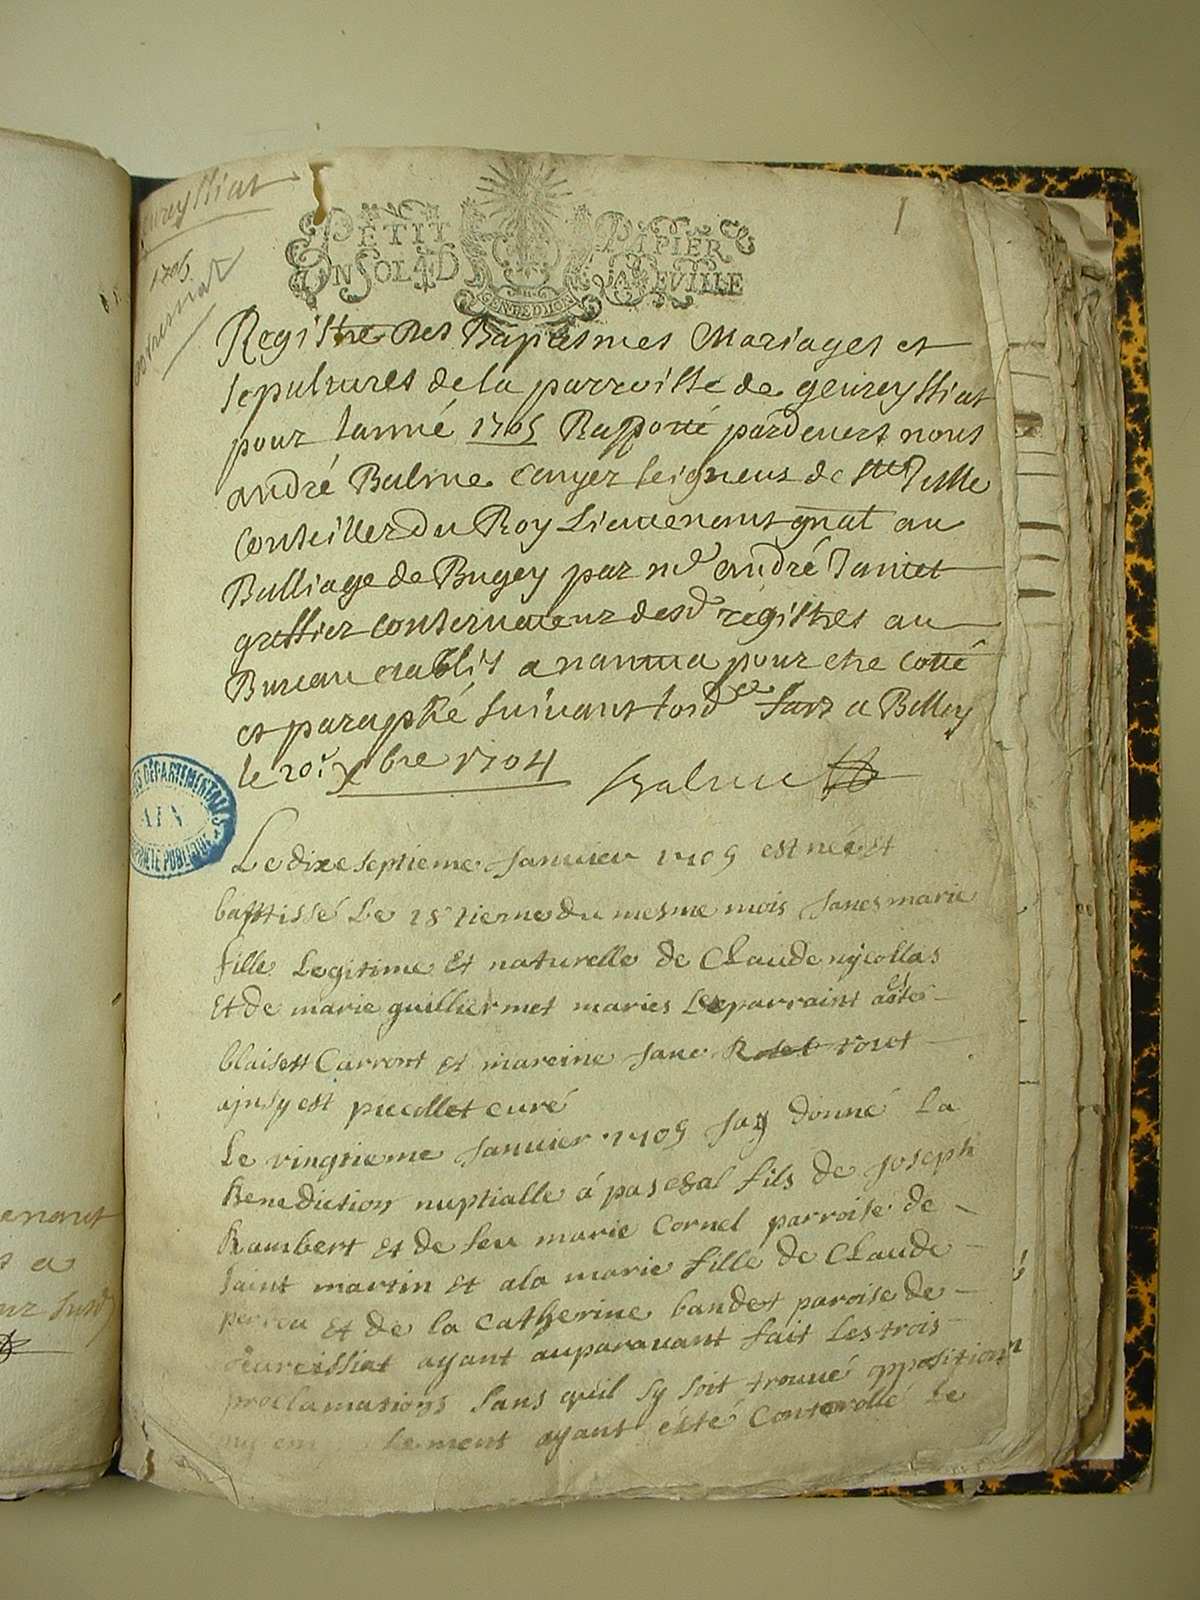 geureyssiat
1705
1
PETIT PAPIER
UN SOL 4 D LA FEUILLE
GEN. DE DIJON
Registre des Baptesmes Mariages et
sepultures de la parroisse de geureyssiat
pour lanné 1705 Rapporté pardevers nous
andré Balme escuyer seigneur de ste Julle
Conseiller du Roy Lieutenant gnal au
Balliage de Bugey par me andré Jantet
greffier conservateur desd registres au
Bureau establis a nantua pour etre cotté
et paraphé suivant lord.ce fait a Belley
le 20.r xbre 1704
Balme
ARCHIVES DÉPARTEMENTALES
AIN
PROPRIÉTÉ PUBLIQUE
Le dixeseptieme Janvier 1705 est née Et
baptissé Le 18 tieme du mesme mois Janesmarie
fille Legitime Et naturelle de Claude nycollas
Et de marie guilliermet maries Le parraint aesté
blaise Carront et mareine Jane Rolet tout
ajnsy est pucollet curé
Le vingtieme Janvier 1705 Jay donné La
Benediction nuptialle á paschal fils de Joseph
Rambert et de feu marie Cornel parroise de
saint martin et ala marie fille de Claude
perrou Et de la Catherine bandet paroise de
geureissiat ayant auparavant fait Les trois
proclamations sans quil sy soit trouvé opposition
ny em lement ayant ésté Controllé Le
enant
t a